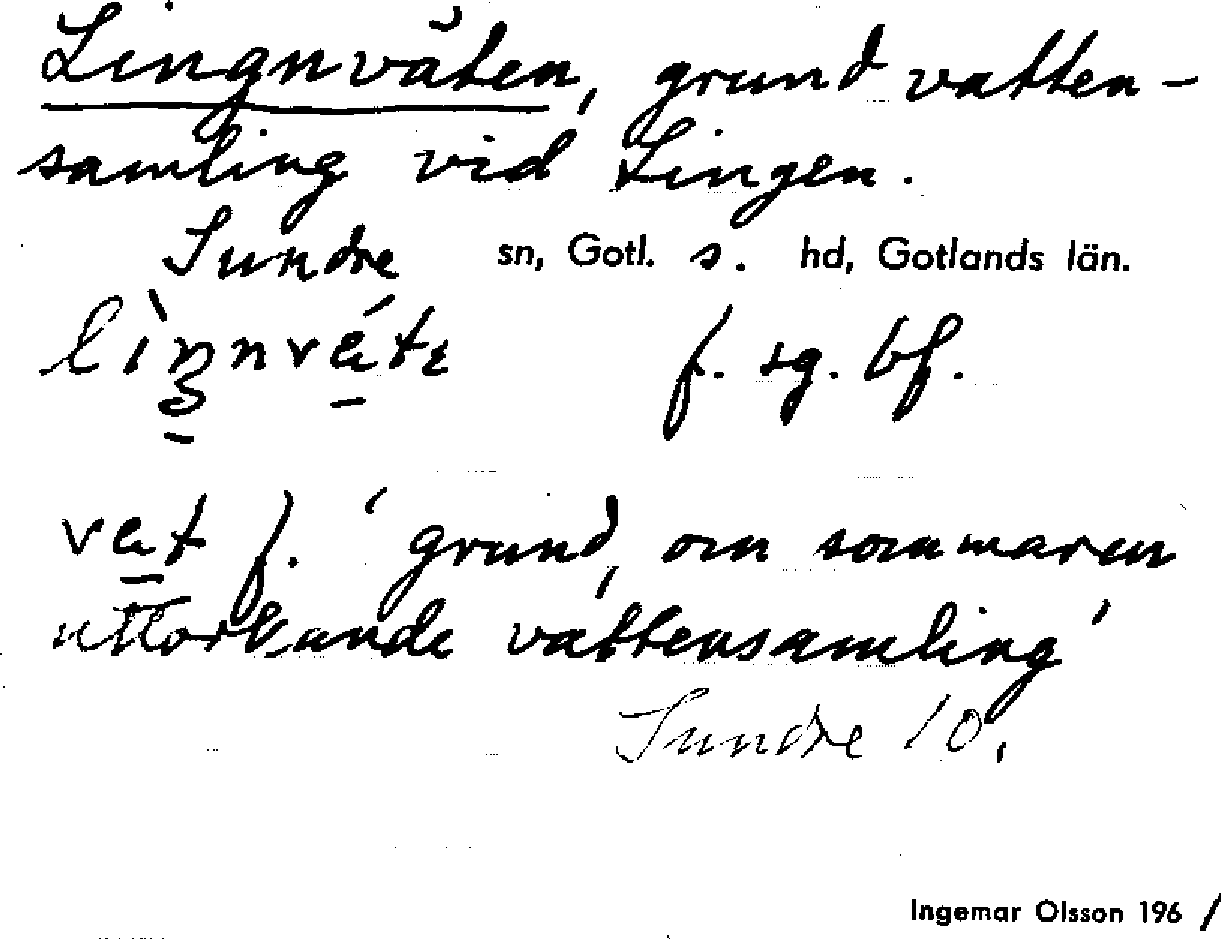 Lingnväten, grund vatten-
samling vid Lingen.
Sundre sn, Gotl. s. hd, Gotlands län.
f. sg. bf.
vat f. 'grund, om sommaren
uttorkande vattensamling'
Sundre 10.
Ingemar Olsson 1961